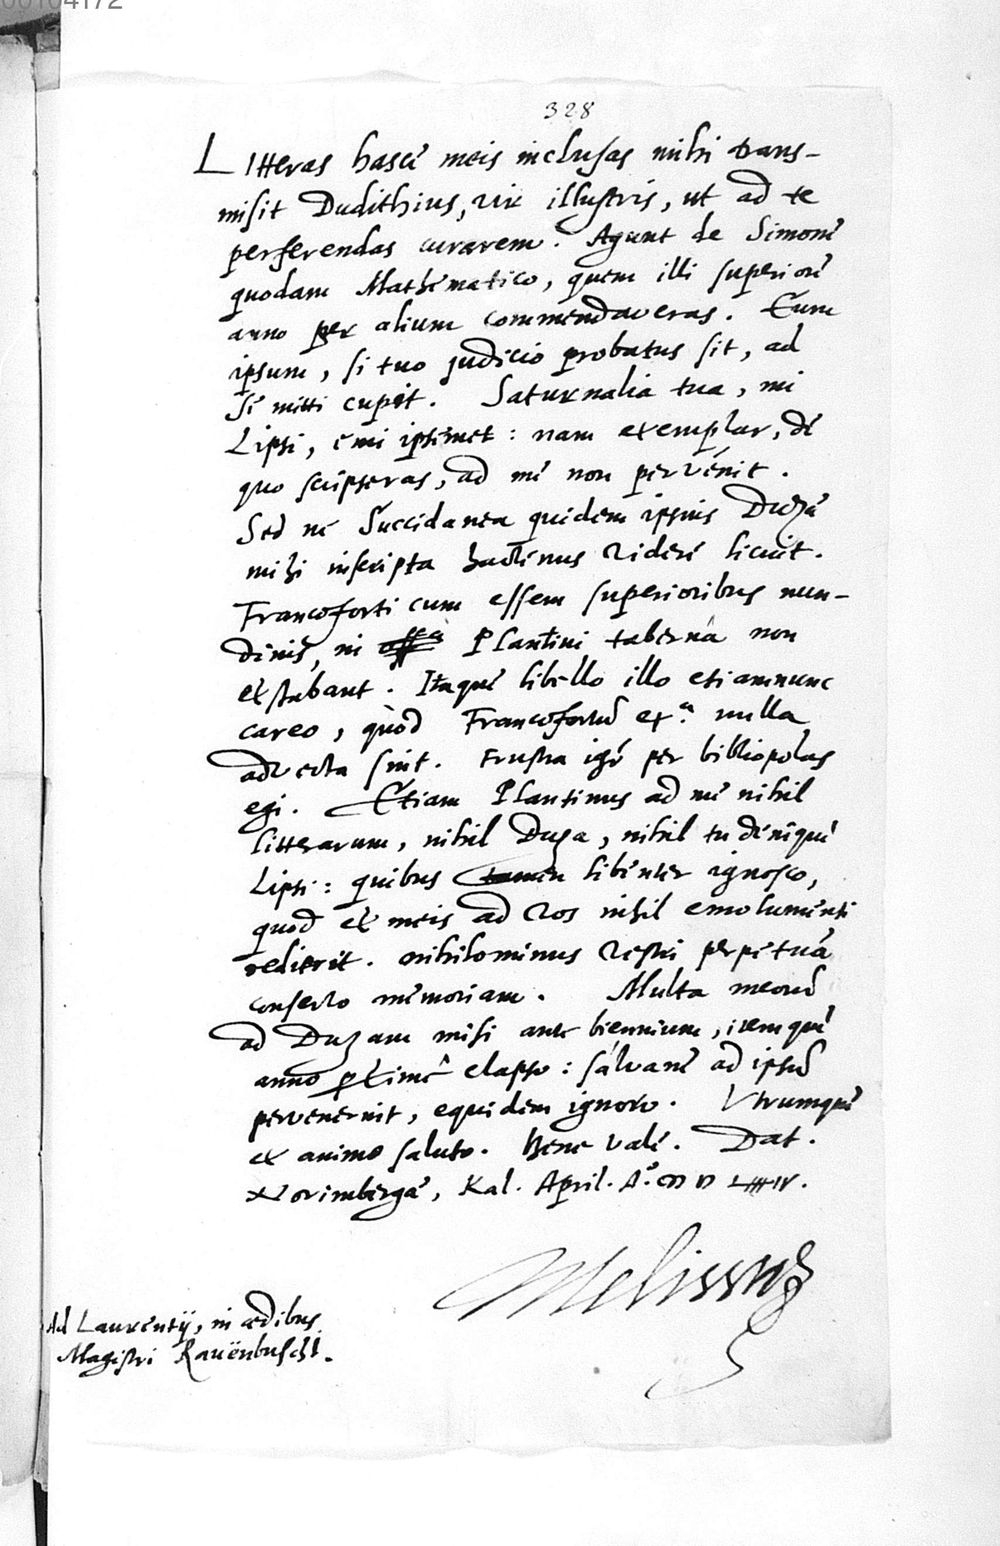 00104172
328
LItteras hasce meis inclusas mihi trans-
misit Dudithius, vir illustris, ut ad te
perferendas curarem. Agunt de Simone
quodam Mathematico, quem illi superiore
anno per alium commendaveras. Eum
ipsum, si tuo judicio probatus sit, ad
se mitti cupit. Saturnalia tua, mi
Lipsi, emi ipsemet: nam exemplar, de
quo scripseras, ad me non pervénit.
Sed ne Succidanea quidem ipsius Duzae
mihi inscripta hactenus videre licuit.
Francoforti cum essem superioribus nun-
dinis, in Plantini tabernâ non
exstabant. Itaque libello illo etiamnunc
careo, quòd Francofortū ex.ᵃ nulla
advecta sint. Frustra igr̄ per bibliopolas
egi. Etiam Plantinus ad me nihil
litterarum, nihil Duza, nihil tu denique
Lipsi: quibus tamen libenter ignosco,
quod ex meis ad vos nihil emolumenti
redierit. nihilominus vestri perpetuā
conservo memoriam. Multa meorū
ad Duzam misi ante biennium, itemque
anno elapso: salvane ad ipsū
pervenerint, equidem ignoro. Vtrumque
ex animo saluto. Bene vale. Dat.
Norimbergae, Kal. April. A.º
Melissus
Ad Laurentij, in ædibus
Magistri Rauënbuscht.